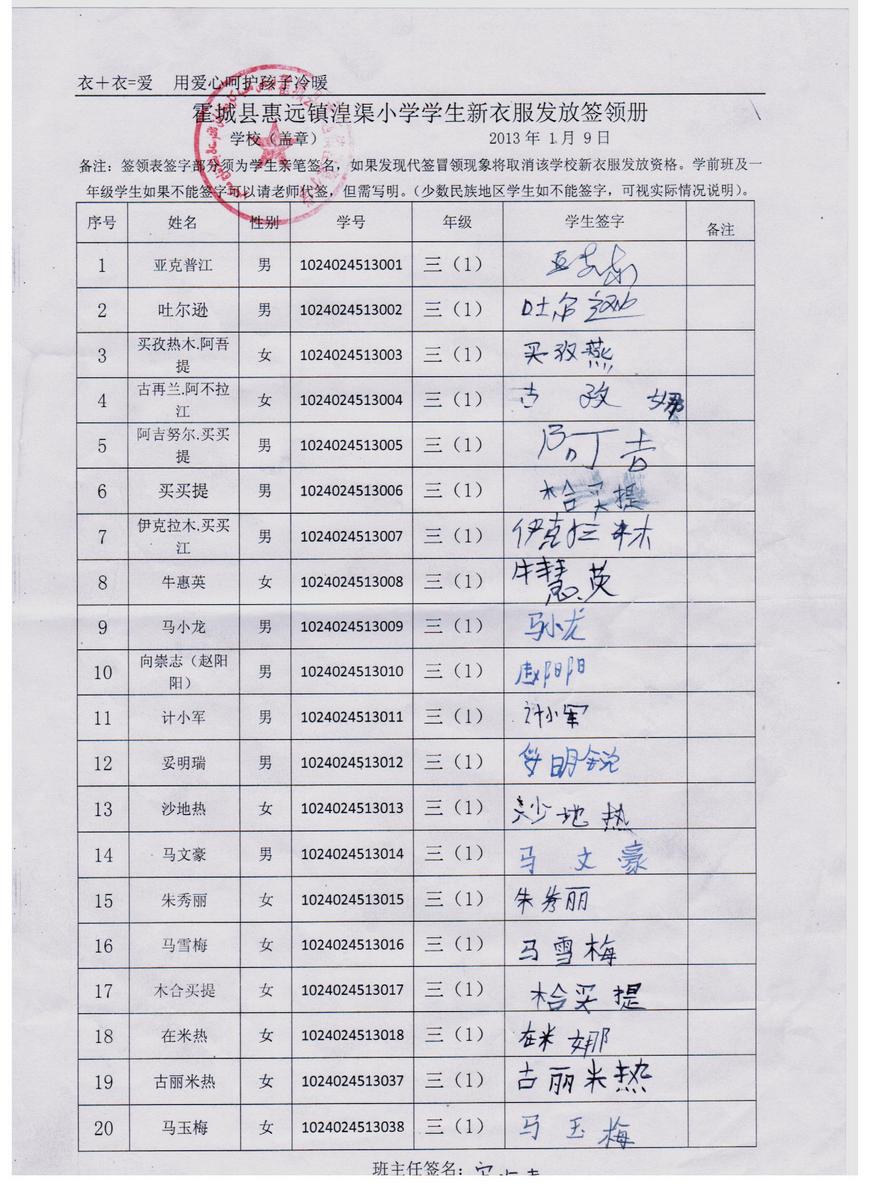 衣＋衣=爱　用爱心呵护孩子冷暖
霍城县惠远镇湟渠小学学生新衣服发放签领册
学校（盖章）　2013 年 1 月 9 日
备注：签领表签字部分须为学生亲笔签名，如果发现代签冒领现象将取消该学校新衣服发放资格。学前班及一
年级学生如果不能签字可以请老师代签，但需写明。（少数民族地区学生如不能签字，可视实际情况说明）。
序号 姓名 性别 学号 年级 学生签字 备注
1 亚克普江 男 1024024513001 三（1）
2 吐尔逊 男 1024024513002 三（1） 吐尔逊
3 买孜热木.阿吾提 女 1024024513003 三（1） 买孜燕
4 古再兰.阿不拉江 女 1024024513004 三（1） 古 孜 娜
5 阿吉努尔.买买提 男 1024024513005 三（1） 阿 吉
6 买买提 男 1024024513006 三（1） 木合买提
7 伊克拉木.买买江 男 1024024513007 三（1） 伊克拉木
8 牛惠英 女 1024024513008 三（1） 牛慧英
9 马小龙 男 1024024513009 三（1） 马小龙
10 向崇志（赵阳阳） 男 1024024513010 三（1） 赵阳阳
11 计小军 男 1024024513011 三（1） 计小军
12 妥明瑞 男 1024024513012 三（1） 妥明锐
13 沙地热 女 1024024513013 三（1） 沙地热
14 马文豪 男 1024024513014 三（1） 马 文 豪
15 朱秀丽 女 1024024513015 三（1） 朱秀丽
16 马雪梅 女 1024024513016 三（1） 马雪梅
17 木合买提 女 1024024513017 三（1） 木合买提
18 在米热 女 1024024513018 三（1） 在米娜
19 古丽米热 女 1024024513037 三（1） 古丽米热
20 马玉梅 女 1024024513038 三（1） 马 玉 梅
班主任签名：